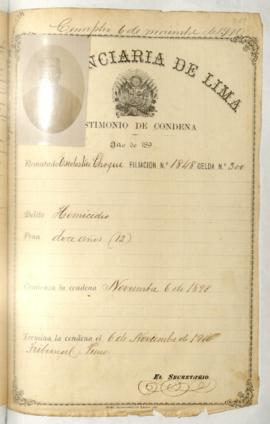 Cumplio 6 de noviembre de 1910
NCIARIA DE LIMA
TESTIMONIO DE CONDENA
Año de 189
Rematado Choque FILIACION N.º 1848 CELDA N.º 300
Delito Homicidio
Pena doce años (12)
Comienza la condena Noviembre 6 de 1898
Termina la condena el 6 de Noviembre de 1910
Tribunal Puno
EL SECRETARIO